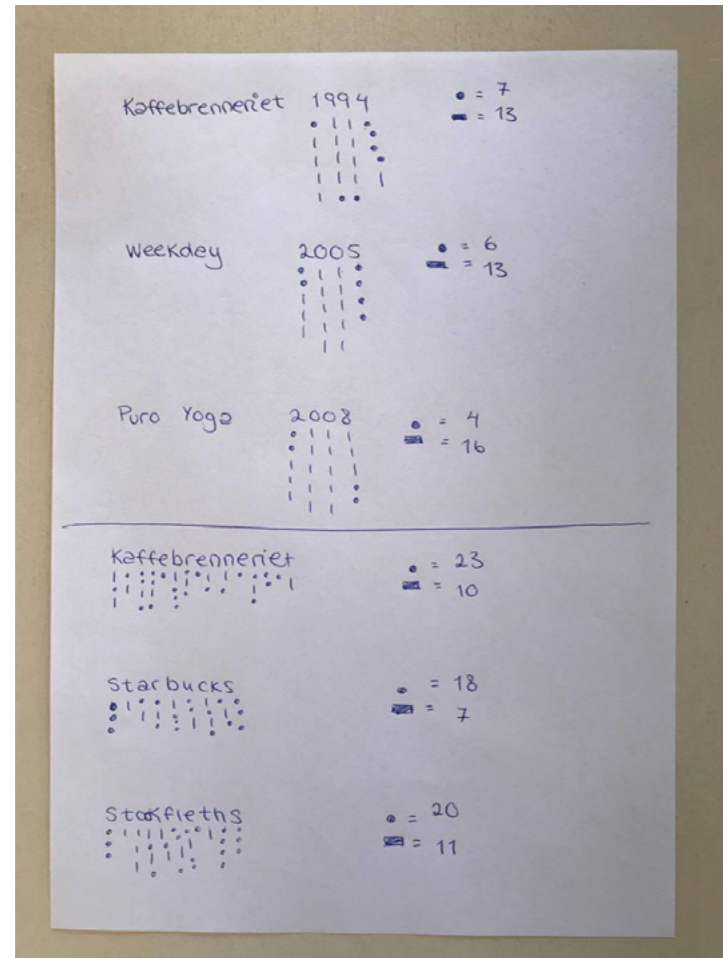 Kaffebrenneriet 1994 • = 7
▬ = 13
Weekdey 2005 • = 6
▬ = 13
Puro Yoga 2008 • = 4
▬ = 16
Kaffebrenneriet • = 23
▬ = 10
Starbucks • = 18
▬ = 7
Stockfleths • = 20
▬ = 11